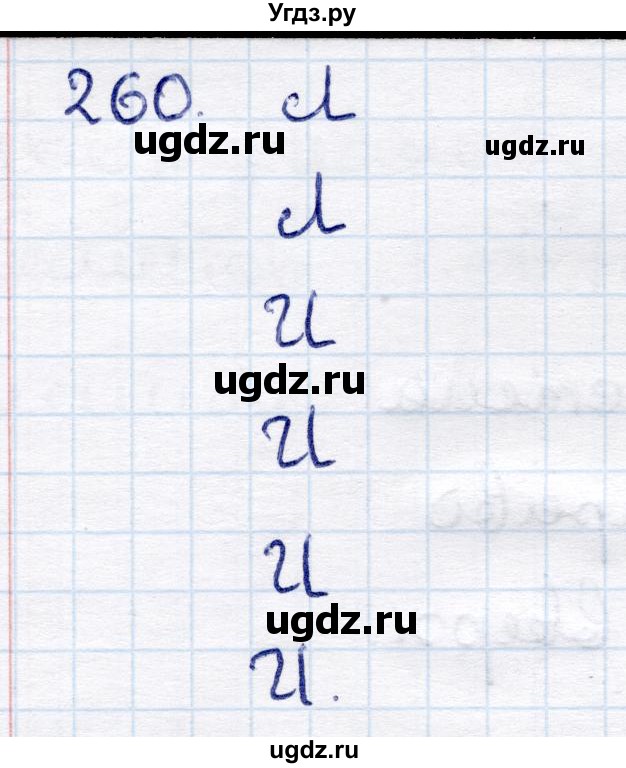 Угдз.ру
260. Л
ugdz.ru
ugdz.ru
Л
И
ugdz.ru
И
И
ugdz.ru
И.
ugdz.ru